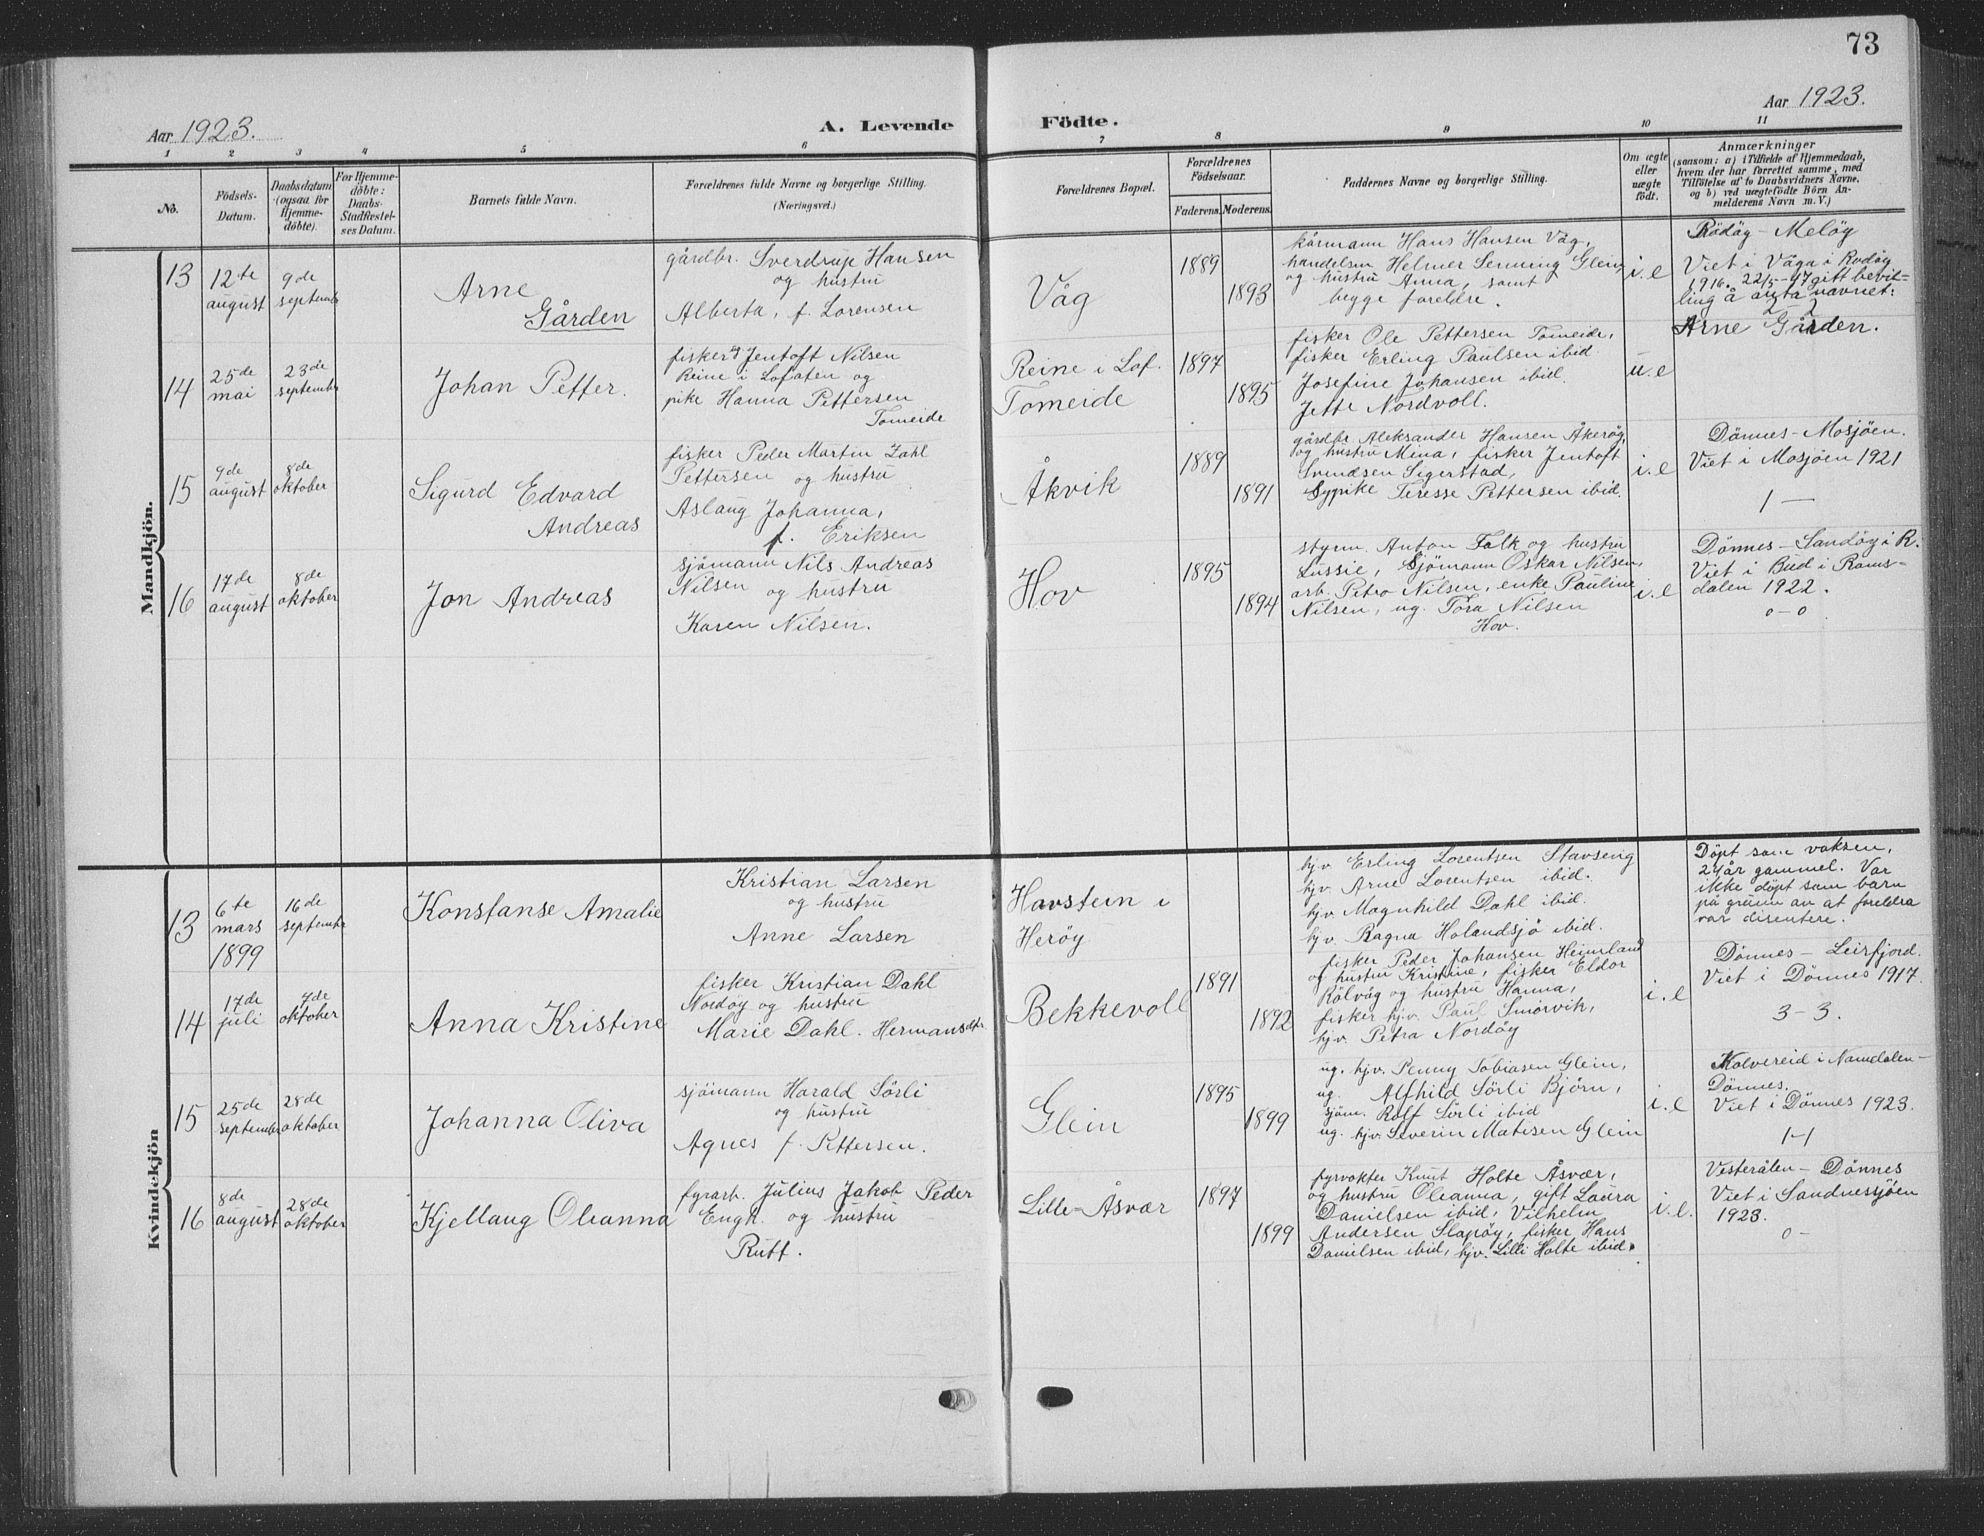 73
Aar 1923.
A. Levende
Födte.
Aar 1923.
1 2 3 4 5 6 7 8 9 10 11
No.
Födsels-
Datum.
Daabsdatum
(ogsaa for
Hjemme-
døbte).
For Hjemme-
døbte:
Daabs-
Stadfæstel-
ses Datum.
Barnets fulde Navn.
Forældrenes fulde Navne og borgerlige Stilling.
(Næringsvei.)
Forældrenes Bopæl.
Forældrenes
Födselsaar.
Faderens.
Moderens.
Faddernes Navne og borgerlige Stilling.
Om ægte
eller
uægte
født.
Anmærkninger
(saasom: a) i Tilfælde af Hjemmedaab,
hvem der har forrettet samme, med
Tilføielse af to Daabsvidners Navne,
og b) ved uægtefödte Börn An-
melderens Navn m. V.)
Mandkjön.
13
12te
august
9de
septemb
Arne
Gården
gårdbr. Sverdrup Hansen
og hustru
Alberta, f. Lorensen
Våg
1889
1893
kårmann Hans Hansen Våg,
handelsm Helmer Glein
og hustru Anna, samt
begge foreldre.
i.e
Rödöy - Melöy
Viet i Våga i Rödöy
1916. 22/5-17 gitt bevil-
ling å anta navnet:
2 2
Arne Gården.
14
25de
mai
23de
september
Johan Petter.
fisker Jentoft Nilsen
Reine i Lofoten og
pike Hanna Pettersen
Tomeide
Reine i Lof.
Tomeide
1897
1895
fisker Ole Pettersen Tomeide,
fisker Erling Paulsen ibid
Josefine Johansen ibid.
Jette Nordvoll.
u.e
15
9de
august
8de
oktober
Sigurd Edvard
Andreas
fisker Peder Martin Zahl
Pettersen og hustru
Aslaug Johanna,
f. Eriksen
Åkvik
1889
1891
gårdbr Aleksander Hansen Åkeröy,
og hustru Mina, fisker Jentoft
Svendsen Sigerstad,
Sypike Teresse Pettersen ibid.
i.e
Dönnes - Mosjöen.
Viet i Mosjöen 1921
1 -
16
17de
august
8de
oktober
Jon Andreas
sjömann Nils Andreas
Nilsen og hustru
Karen Nilsen.
Hov
1895
1894
styrm. Anton Falk og hustru
Lussie, Sjömann Oskar Nilsen,
arb. Petro Nilsen, enke Pauline
Nilsen, ug. Tora Nilsen
Hov.
i.e
Dönnes - Sandöy i R.
Viet i Bud i Roms-
dalen 1922.
0 - 0
Kvindekjön
13
6te
mars
1899
16de
september
Konstanse Amalie
Kristian Larsen
og hustru
Anne Larsen
Havstein i
Heröy
hjv. Erling Lorentsen Stavseng
hjv. Arne Lorentsen ibid.
hjv. Magnhild Dahl ibid.
hjv. Ragna Holandsjö ibid.
Döpt som voksen,
24 år gammel. Var
ikke döpt som barn
på grunn av at foreldra
var disentere.
14
17de
juli
7de
oktober
Anna Kristine
fisker Kristian Dahl
Nordöy og hustru
Marie Dahl. Hermansdtr.
Bekkevoll
1891
1892
fisker Peder Johansen Heimland
og hustru Kristine, fisker Eldor
Rölvåg og hustru Hanna,
fisker hjv. Paul Smörvik,
hjv. Petra Nordöy
i.e
Dönnes - Leirfjord.
Viet i Dönnes 1917.
3 - 3.
15
25de
september
28de
oktober
Johanna Oliva
sjömann Harald Sörli
og hustru
Agnes f. Pettersen.
Glein
1895
1899
ug. hjv. Penny Tobiasen Glein,
ug. Alfhild Sörli Björn,
sjöm. Rolf Sörli ibid
ug. hjv. Severin Matisen Glein
i.e
Kolvereid i Namdalen -
Dönnes.
Viet i Dönnes 1923.
1-1
16
8de
august
28de
oktober
Kjellaug Oleanna
fyrarb. Julius Jakob Peder
Engh. og hustru
Rutt.
Lille-Åsvær
1897
1899
fyrvokter Knut Holte Åsvær,
og hustru Oleanna, gift Laura
Danielsen ibid, Vilhelm
Andersen Slapöy, fisker Hans
Danielsen ibid, hjv. Lilli Holte ibid.
i.e.
Vesterålen - Dönnes
Viet i Sandnessjöen
1923.
0 -